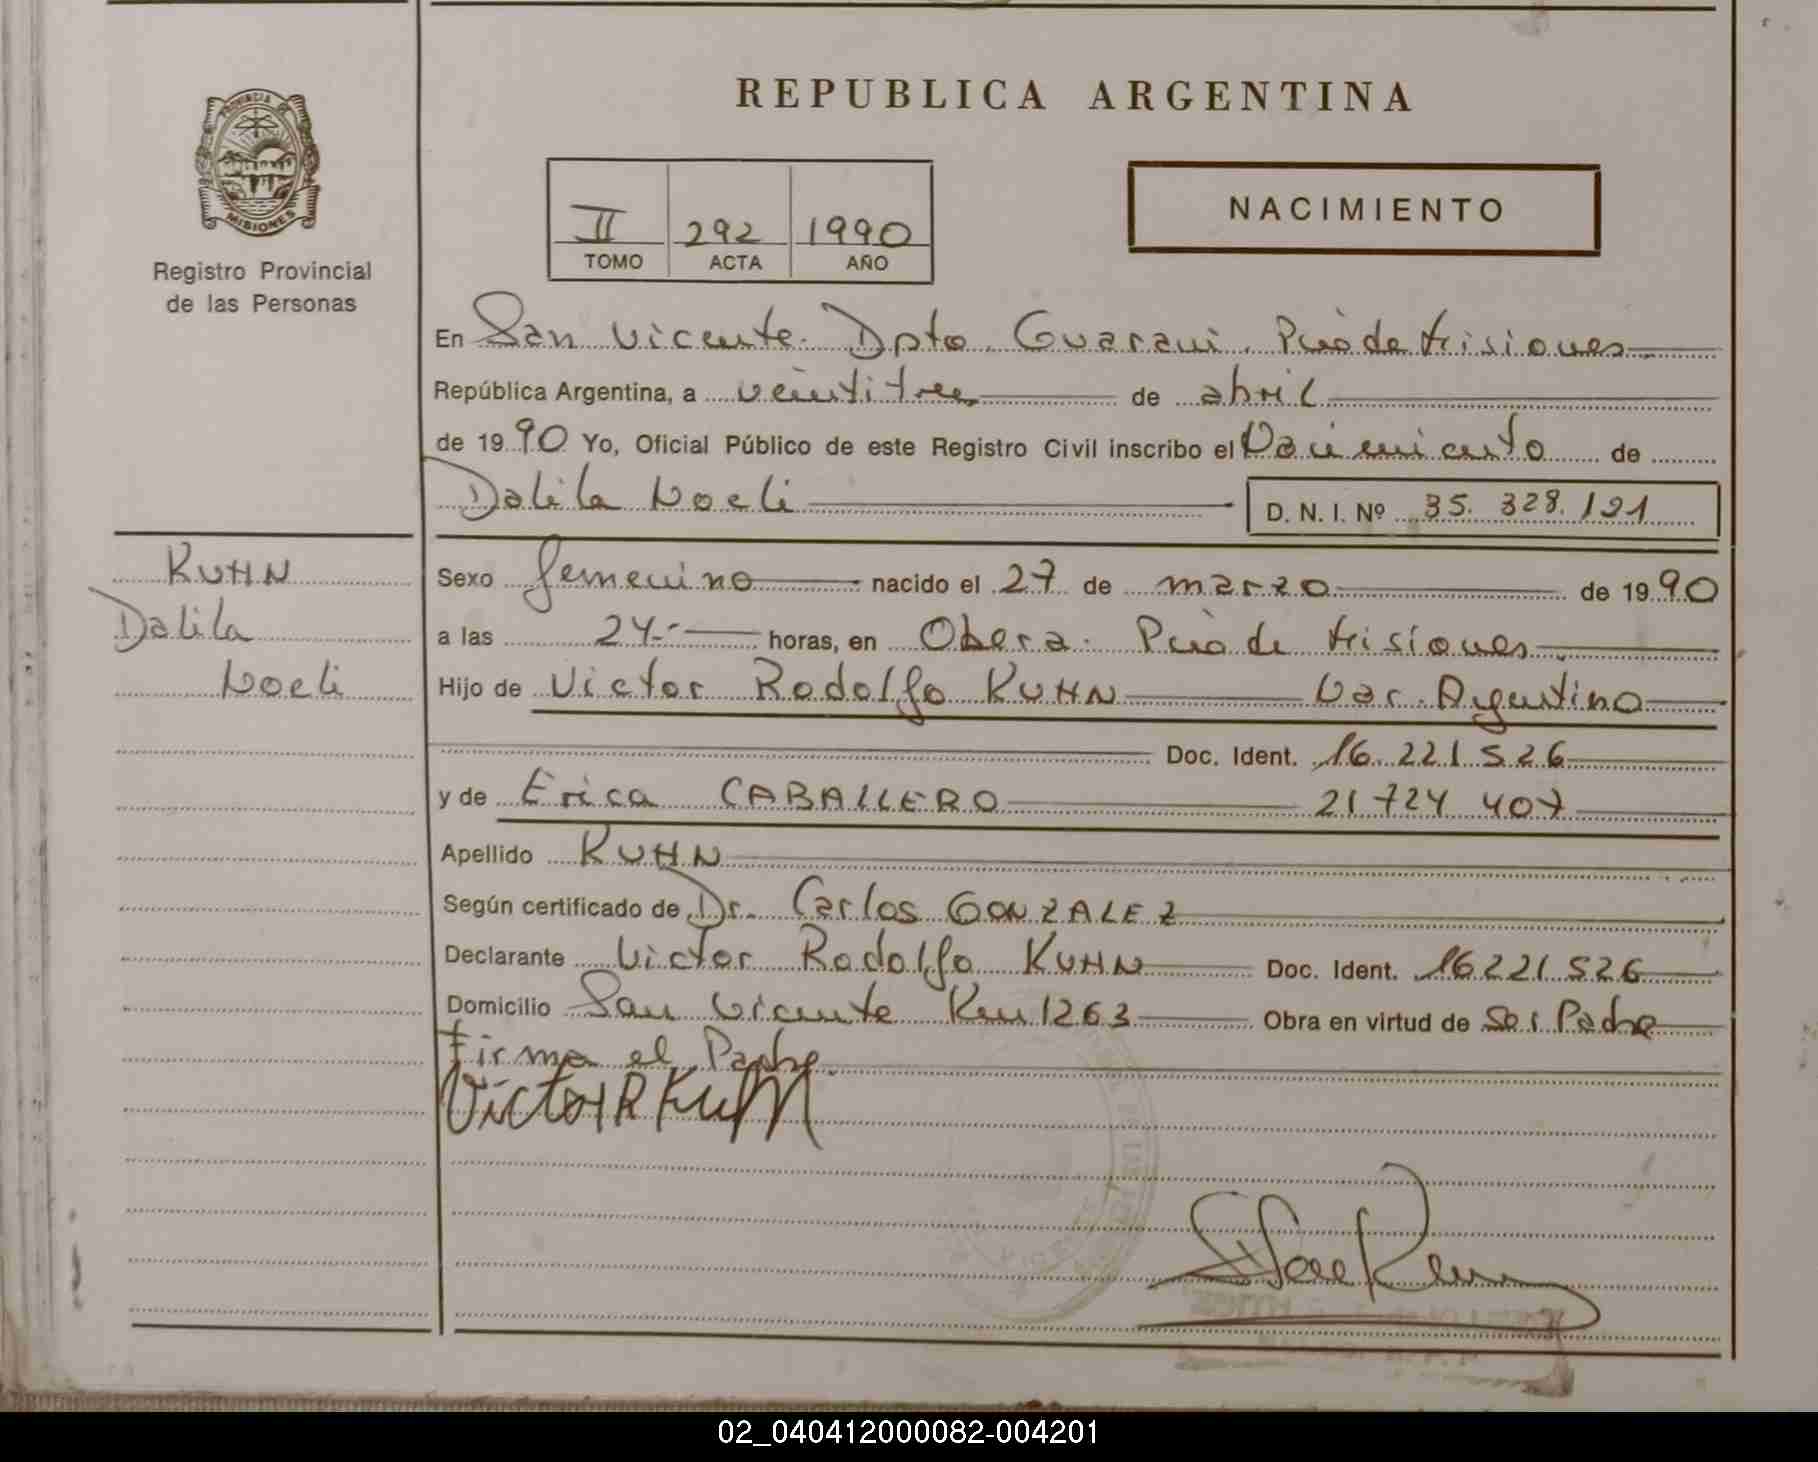 REPUBLICA ARGENTINA
PROVINCIA DE
MISIONES
Registro Provincial
de las Personas
II 292 1990
TOMO ACTA AÑO
NACIMIENTO
En San Vicente. Dpto. Guarani. Pcia de Misiones
República Argentina, a veintitres de abril
de 1990 Yo, Oficial Público de este Registro Civil inscribo el Nacimiento de
Dalila Noeli
D. N. I. Nº 35. 328. 191
KUHN
Dalila
Noeli
Sexo femenino nacido el 27 de marzo de 1990
a las 24.- horas, en Obera. Pcia de Misiones
Hijo de Victor Rodolfo KUHN Nac. Argentino
Doc. Ident. 16.221.526
y de Erica CABALLERO 21 724 407
Apellido KUHN
Según certificado de Dr. Carlos GONZALEZ
Declarante Victor Rodolfo KUHN Doc. Ident. 16 221 526
Domicilio San Vicente Km 1263 Obra en virtud de Ser Padre
Firma el Padre.
Victor R Kuhn
02_040412000082-004201